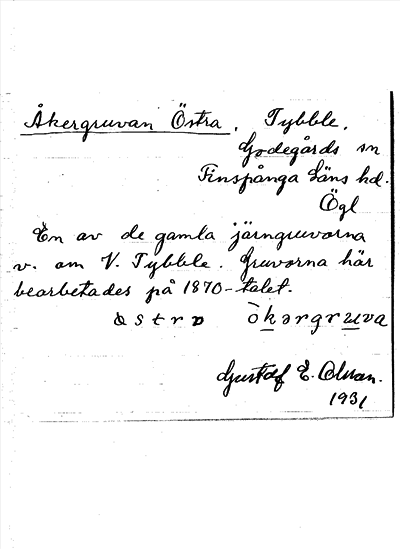 Åkergruvan Östra, Tybble,
Godegårds sn
Finspånga Läns hd.
Ögl
En av de gamla järngruvorna
v. om V. Tybble. Gruvorna här
bearbetades på 1870-talet.
östra òkərgruva
Gustaf E. Olsson.
1931